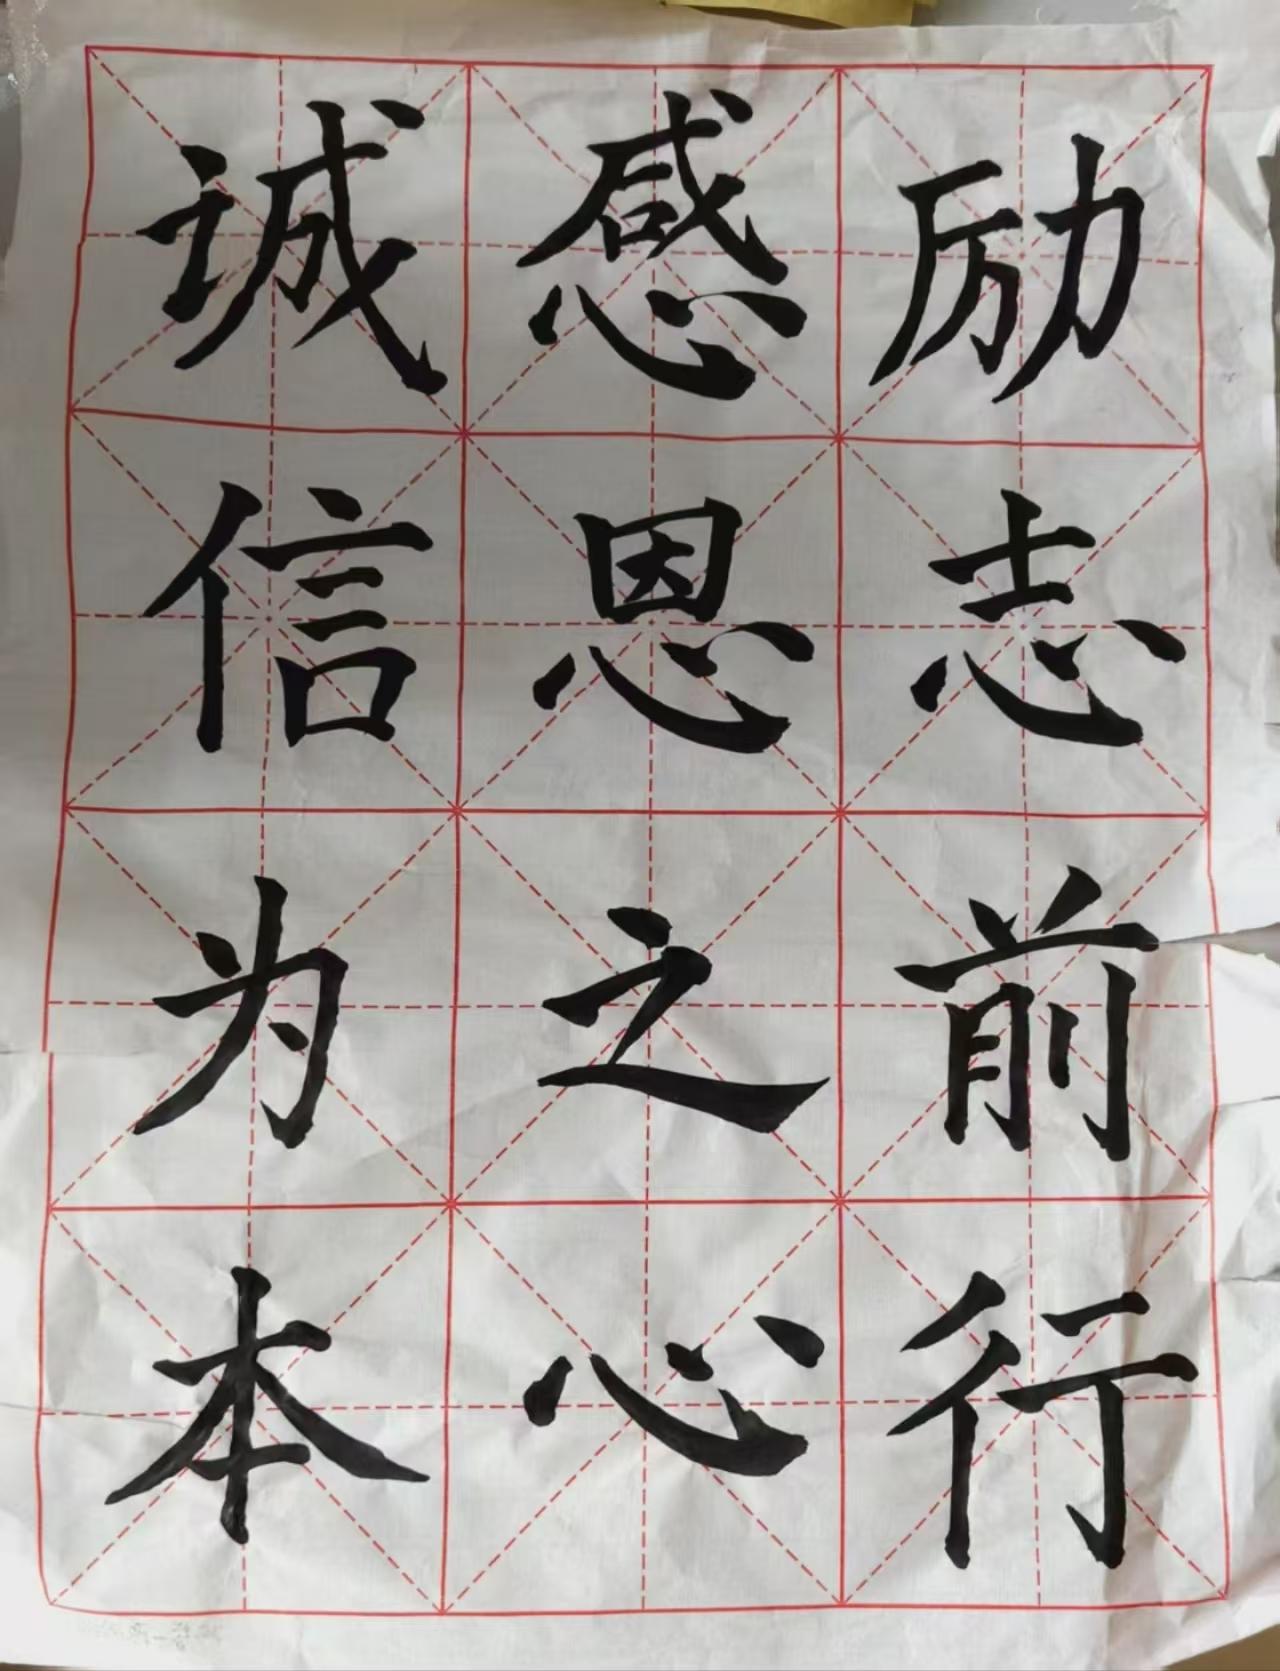 励志前行
感恩之心
诚信为本